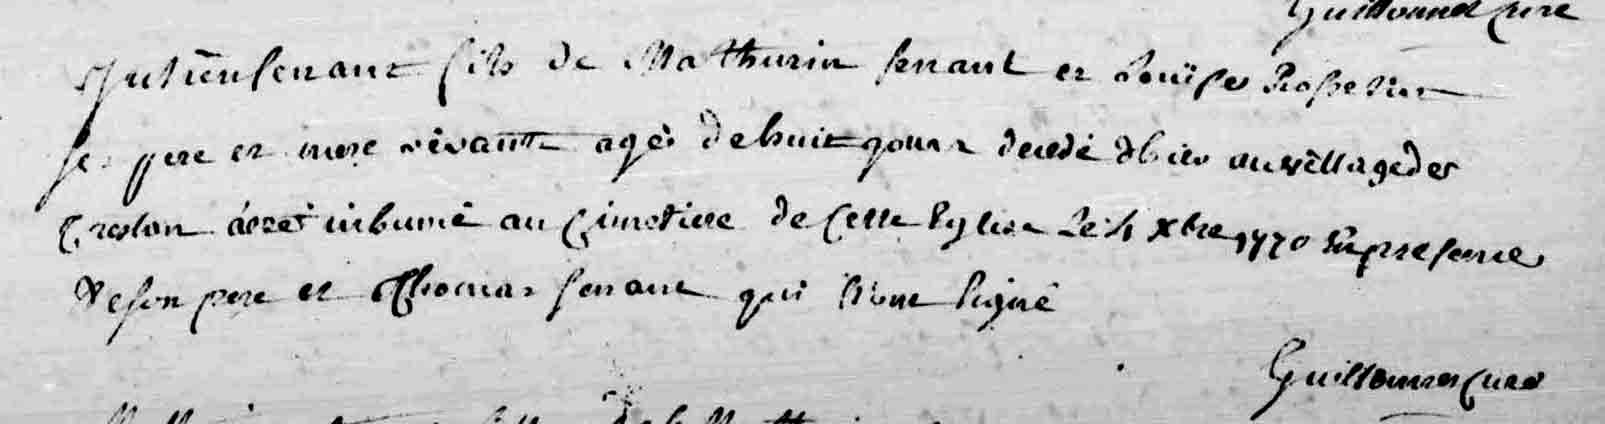 Guillonnet Cure
Julien senant fils de Mathurin senant et Louise Rosselin
ses pere et mere vivants agé de huit jours decedé d'hier au village des
a eté inhumé au Cimetiere de Cette Eglise Le 4 Xbre 1770 En presence
de son pere et Thomas senant qui n'ont signé
Guillonnet Cure